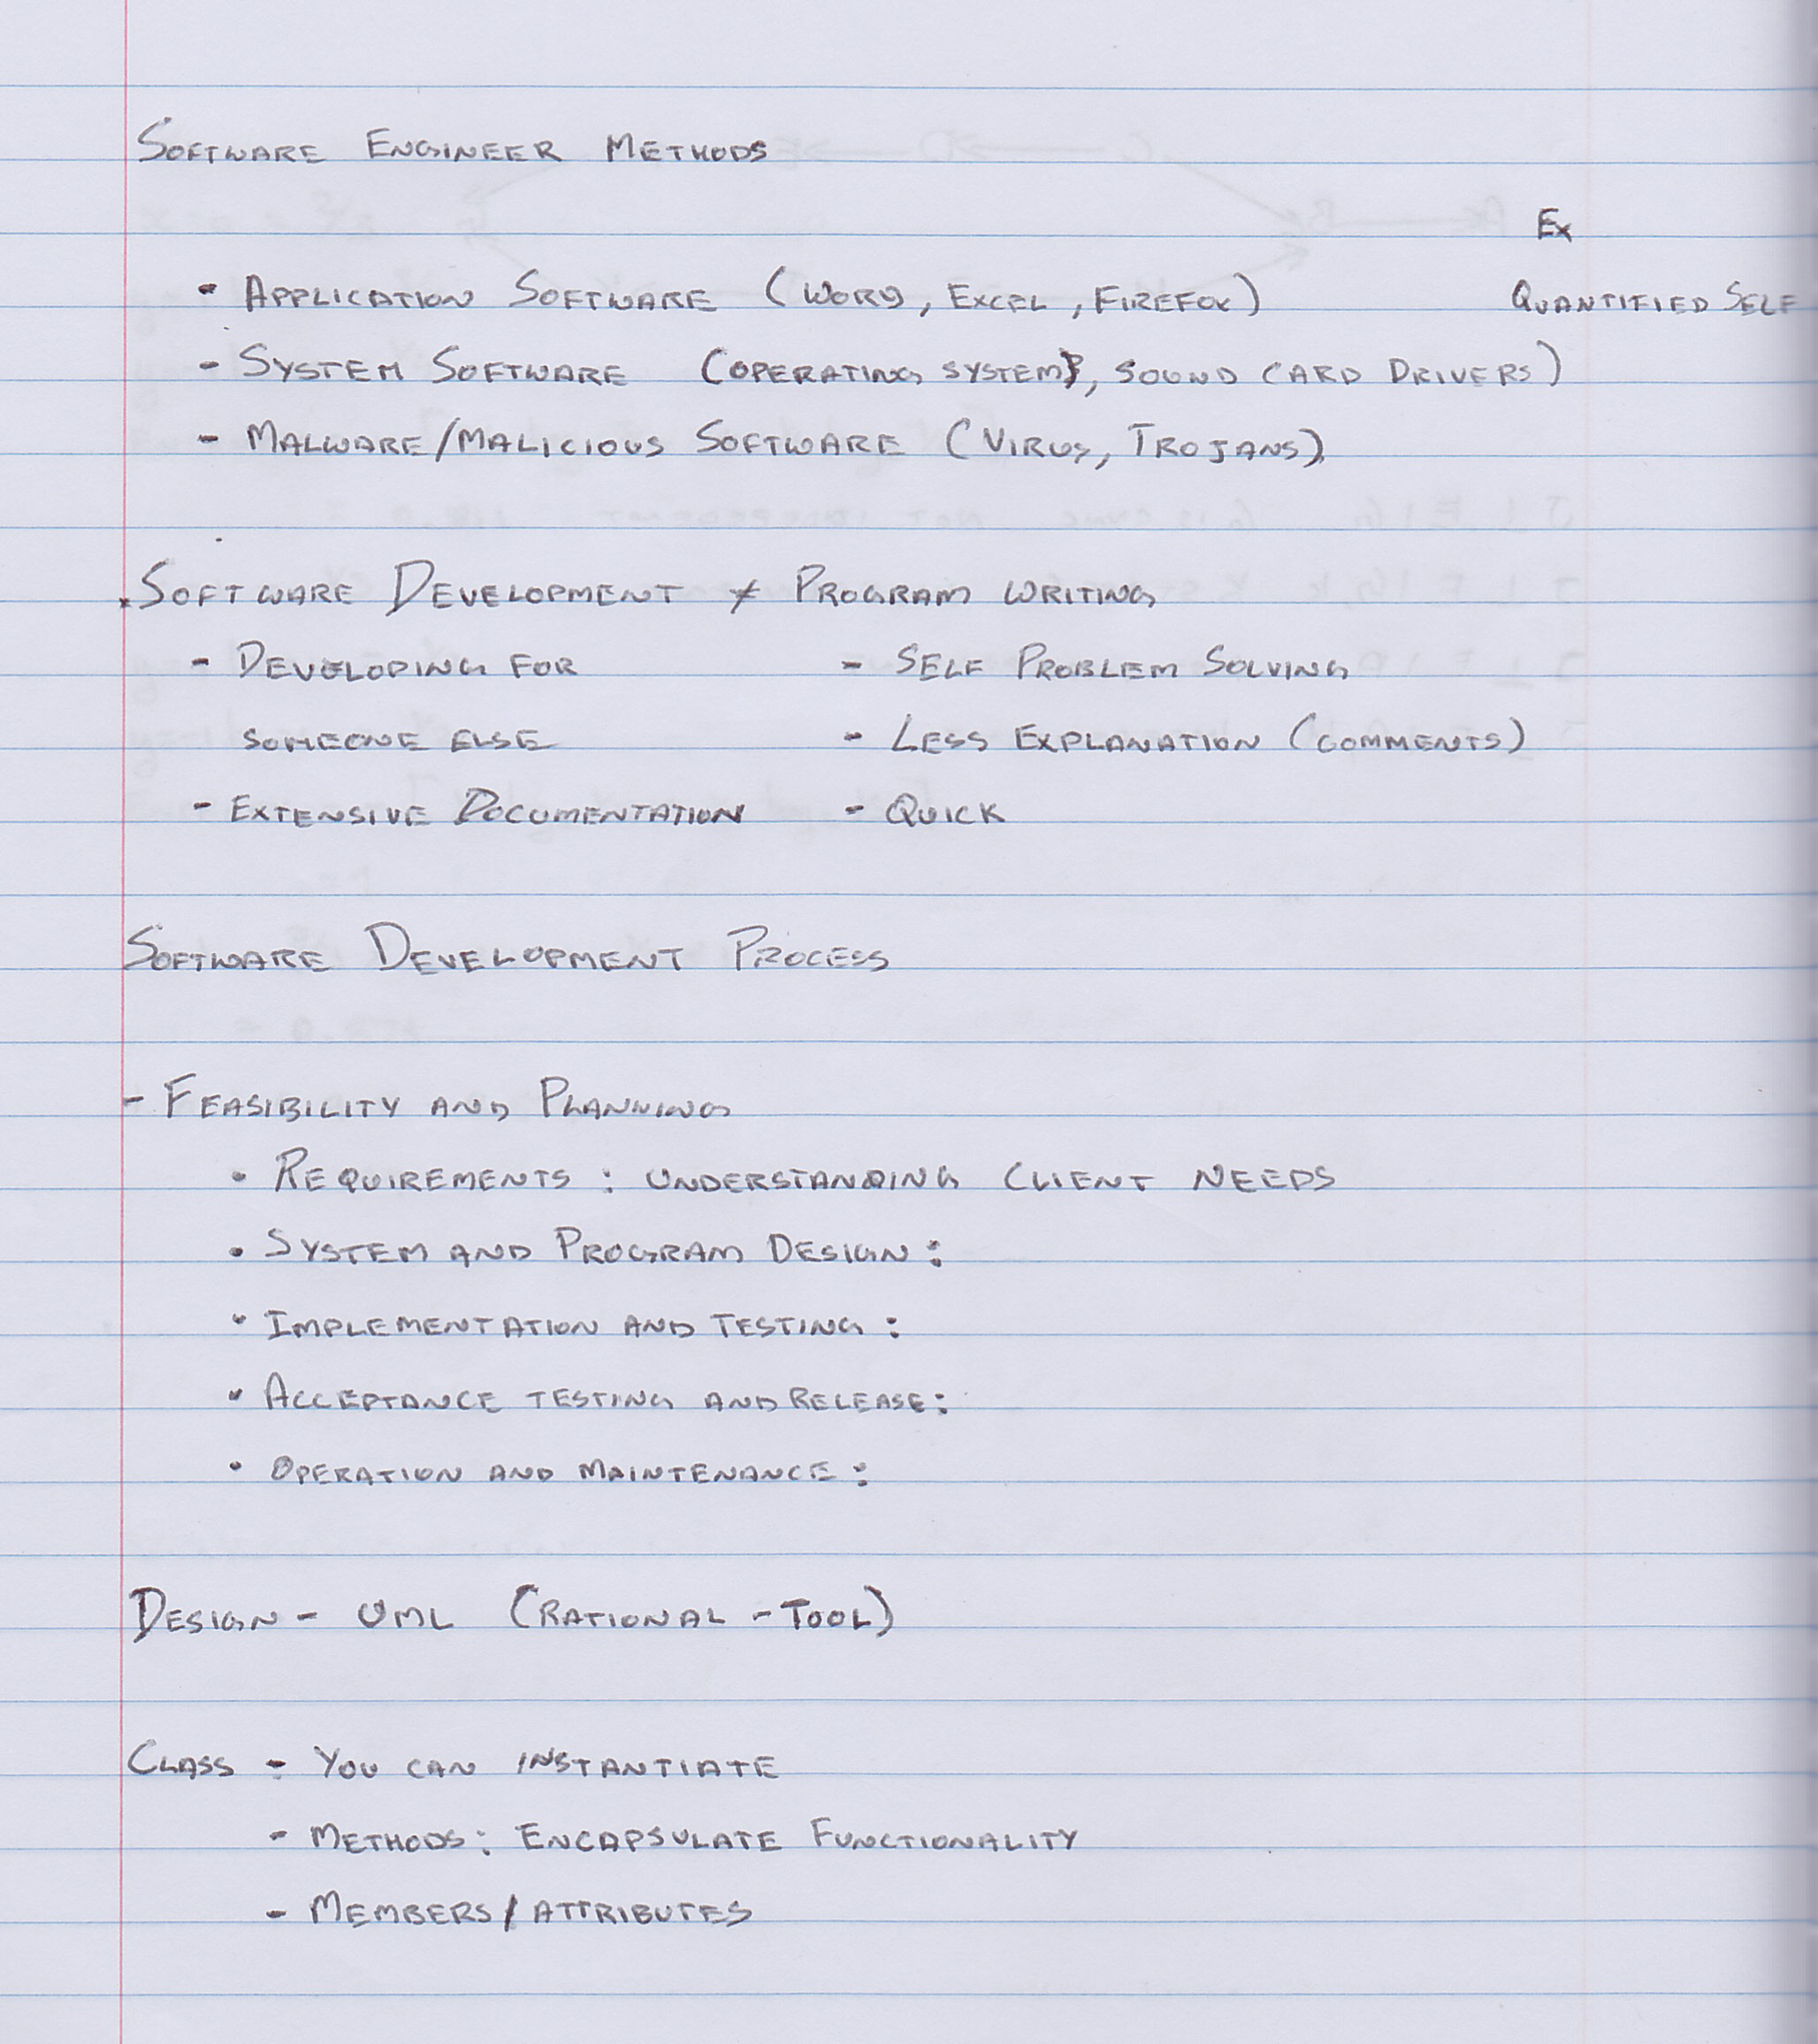 SOFTWARE ENGINEER METHODS
Ex
- APPLICATION SOFTWARE (WORD, EXCEL, FIREFOX) QUANTIFIED SELF
- SYSTEM SOFTWARE (OPERATING SYSTEM), SOUND CARD DRIVERS)
- MALWARE/MALICIOUS SOFTWARE (VIRUS, TROJANS)
. SOFTWARE DEVELOPMENT ≠ PROGRAM WRITING
- DEVELOPING FOR - SELF PROBLEM SOLVING
SOMEONE ELSE - LESS EXPLANATION (COMMENTS)
- EXTENSIVE DOCUMENTATION - QUICK
SOFTWARE DEVELOPMENT PROCESS
- FEASIBILITY AND PLANNING
• REQUIREMENTS : UNDERSTANDING CLIENT NEEDS
• SYSTEM AND PROGRAM DESIGN :
• IMPLEMENTATION AND TESTING :
• ACCEPTANCE TESTING AND RELEASE :
• OPERATION AND MAINTENANCE :
DESIGN - UML (RATIONAL - TOOL)
CLASS - YOU CAN INSTANTIATE
- METHODS: ENCAPSULATE FUNCTIONALITY
- MEMBERS / ATTRIBUTES